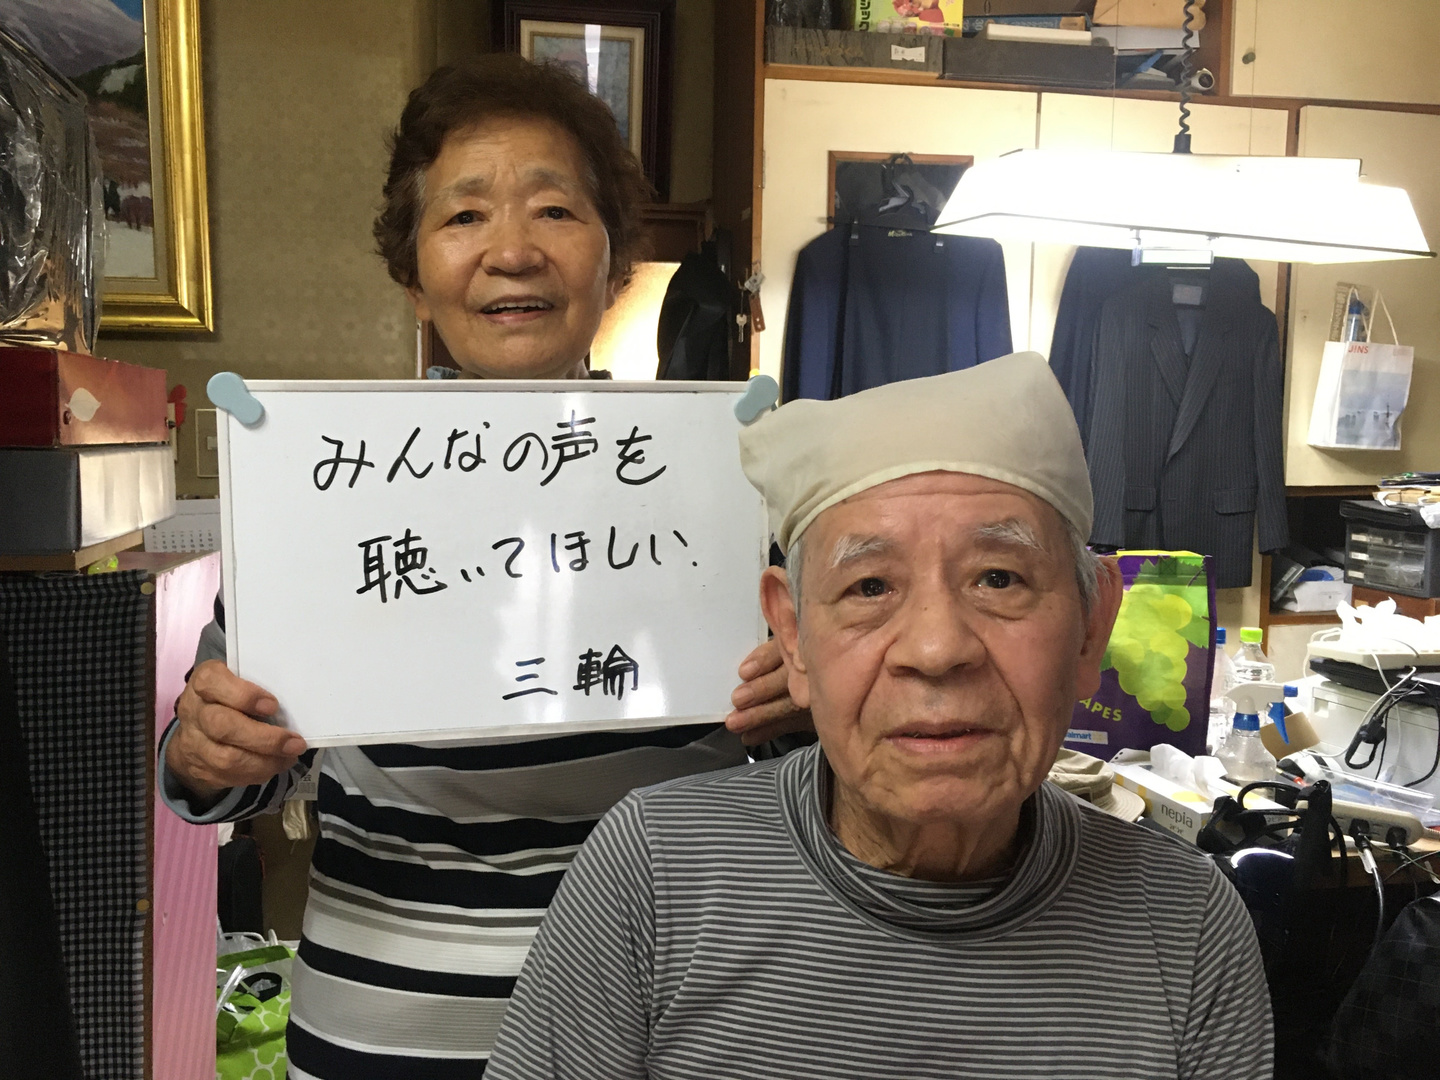 みんなの声を
聴いてほしい.
三輪
APES
almart
nepia